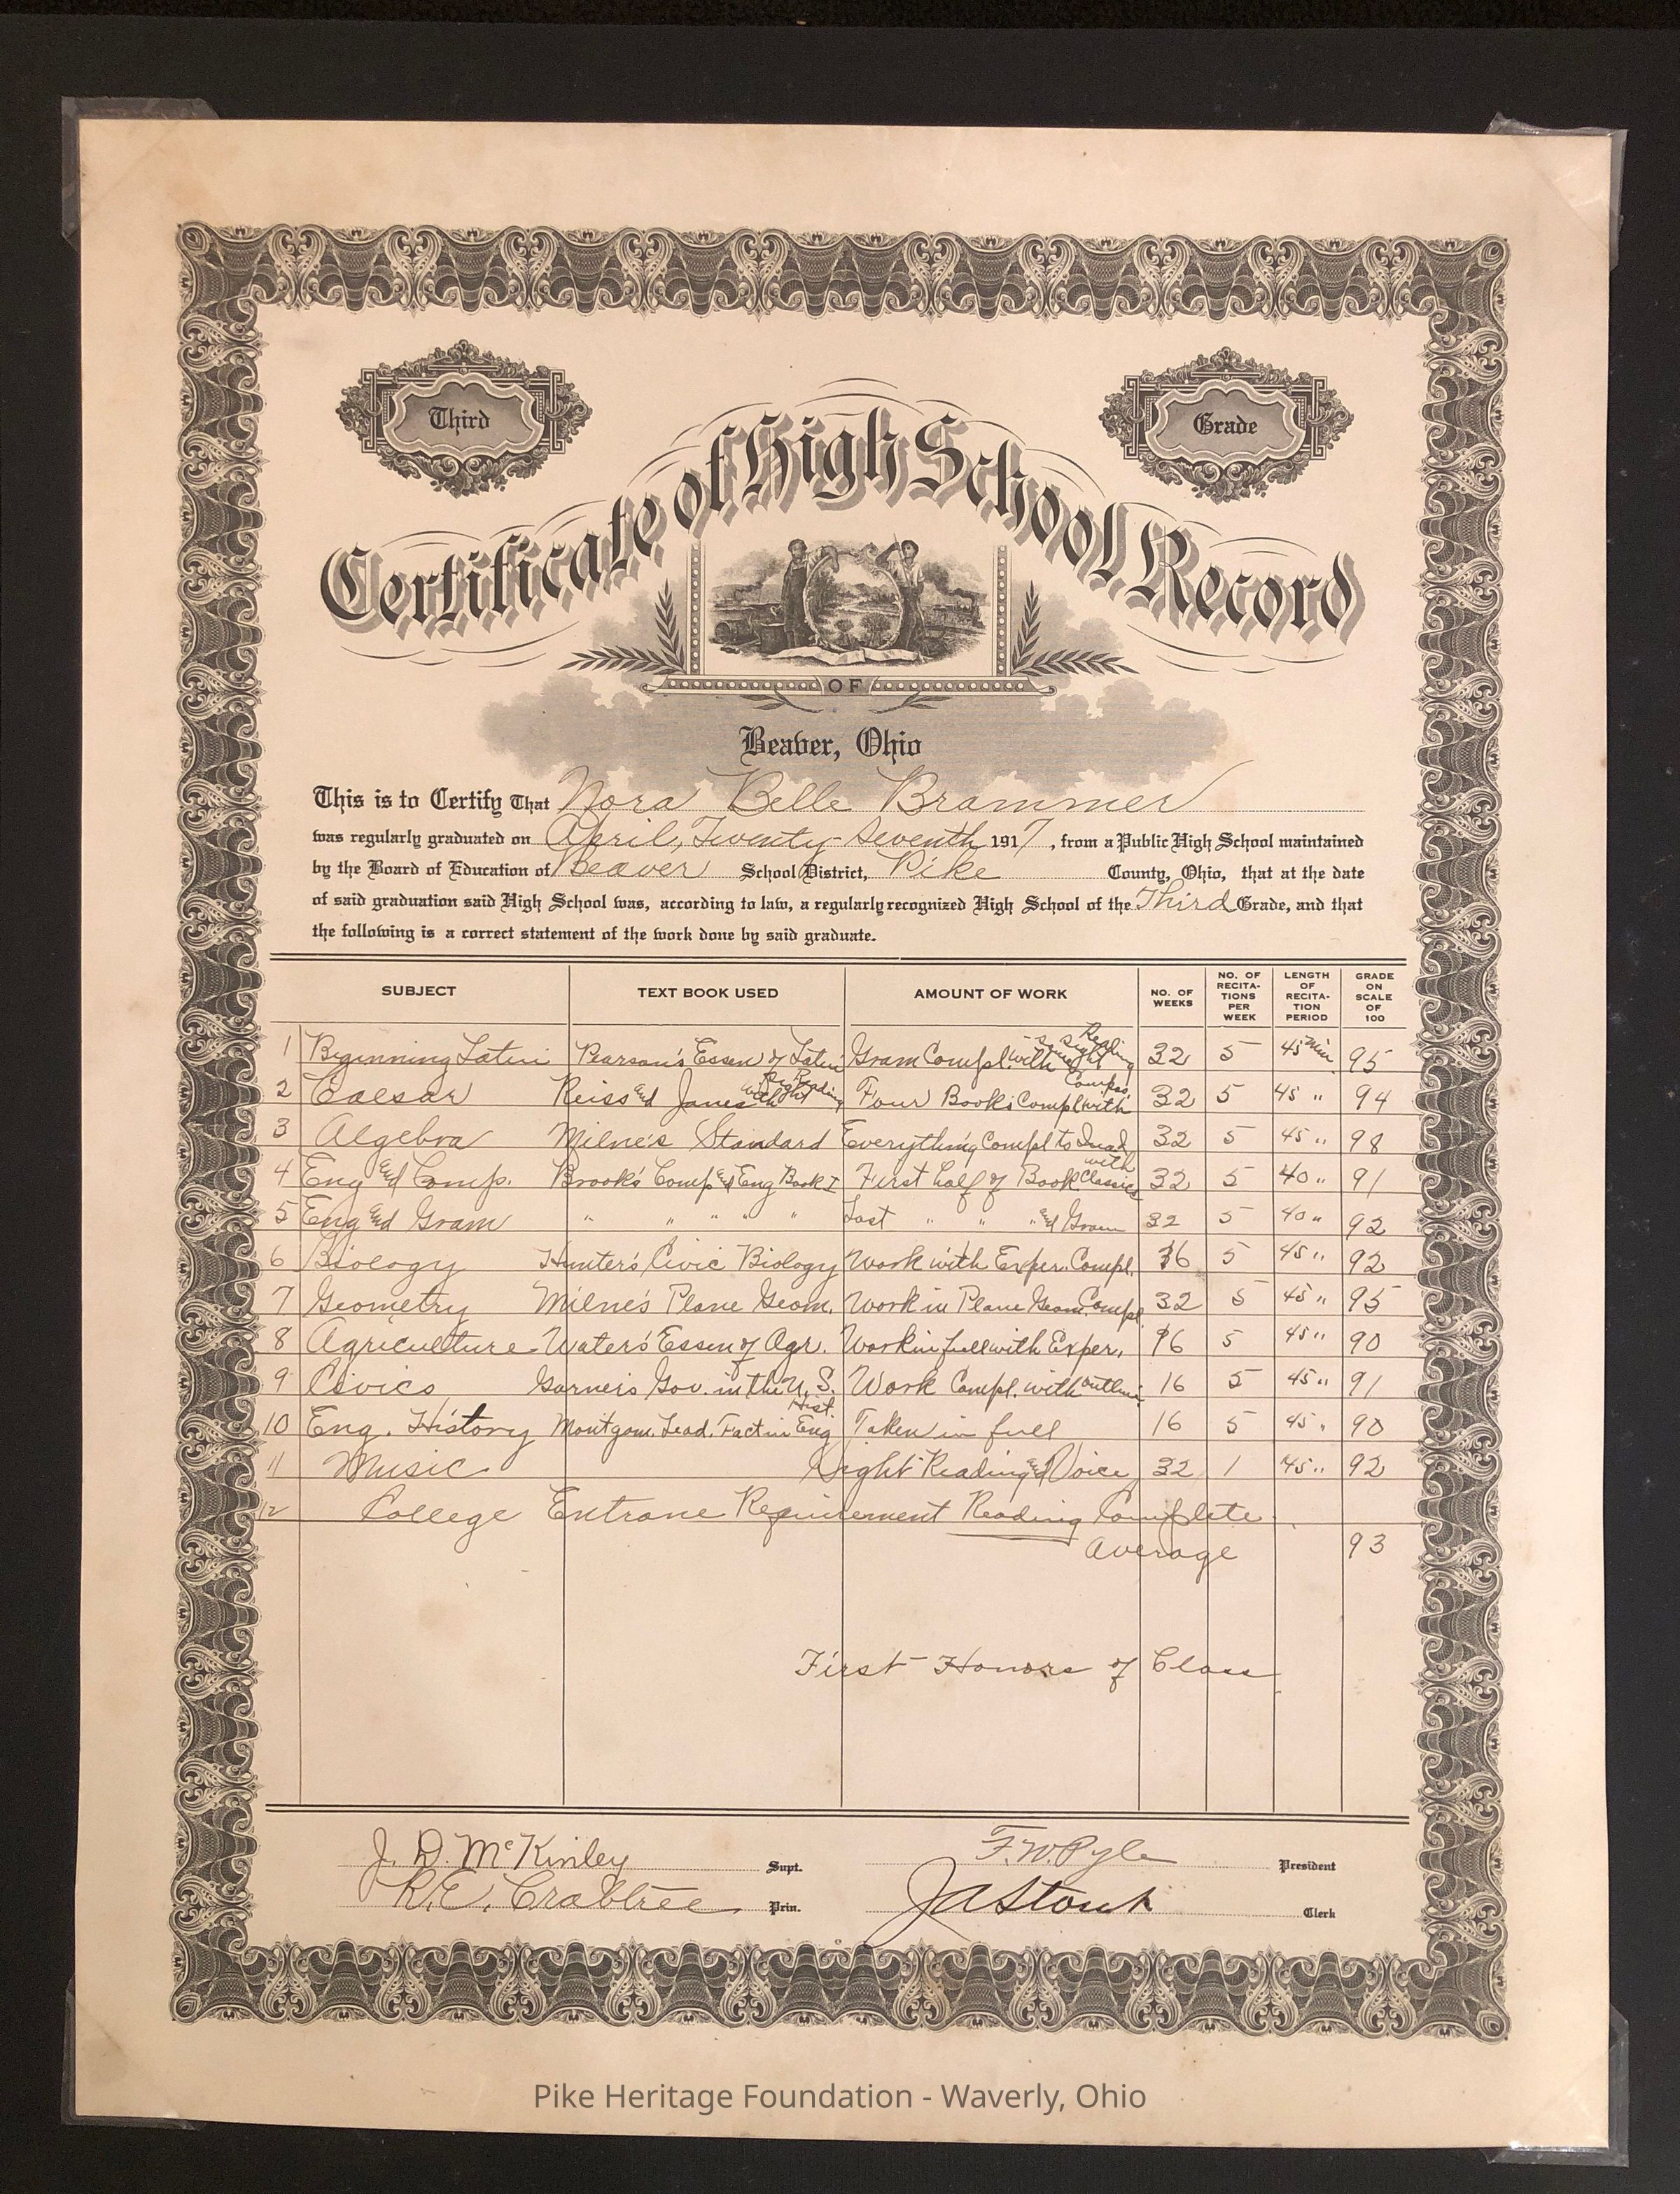 Third
Grade
Certificate of High School Record
OF
Beaver, Ohio
This is to Certify That Nora Belle Brammer
was regularly graduated on April, Twenty-Seventh 1917, from a Public High School maintained
by the Board of Education of Beaver School District, Pike County, Ohio, that at the date
of said graduation said High School was, according to law, a regularly recognized High School of the Third Grade, and that
the following is a correct statement of the work done by said graduate.
SUBJECT TEXT BOOK USED AMOUNT OF WORK NO. OF WEEKS NO. OF RECITATIONS PER WEEK LENGTH OF RECITATION PERIOD GRADE ON SCALE OF 100
1 Beginning Latin Pearson's Essen of Latin Gram Compl. with Sight Reading 32 5 45 Min 95
2 Caesar Reiss and Janes with Sight Reading Four Books Compl with Compos. 32 5 45 " 94
3 Algebra Milne's Standard Everything Compl to Quad 32 5 45 " 98
4 Eng and Comp. Brook's Comp and Eng Book I First half of Book with Classics 32 5 40 " 91
5 Eng and Gram " " " " Last " " " and Gram 32 5 40 " 92
6 Biology Hunter's Civic Biology Work with Exper. Compl. 16 5 45 " 92
7 Geometry Milne's Plane Geom. Work in Plane Geom. Compl 32 5 45 " 95
8 Agriculture Water's Essen of Agr. Work in full with Exper. 16 5 45 " 90
9 Civics Garner's Gov. in the U.S. Work Compl. with outline 16 5 45 " 91
10 Eng. History Montgom. Lead. Fact in Eng Hist. Taken in full 16 5 45 " 90
11 Music Sight Reading and Voice 32 1 45 " 92
12 College Entrane Requirement Reading Complete
Average 93
First Honors of Class
J. D. McKinley Supt. F. W. Pyle President
R. E. Crabtree Prin. J A Stout Clerk
Pike Heritage Foundation - Waverly, Ohio